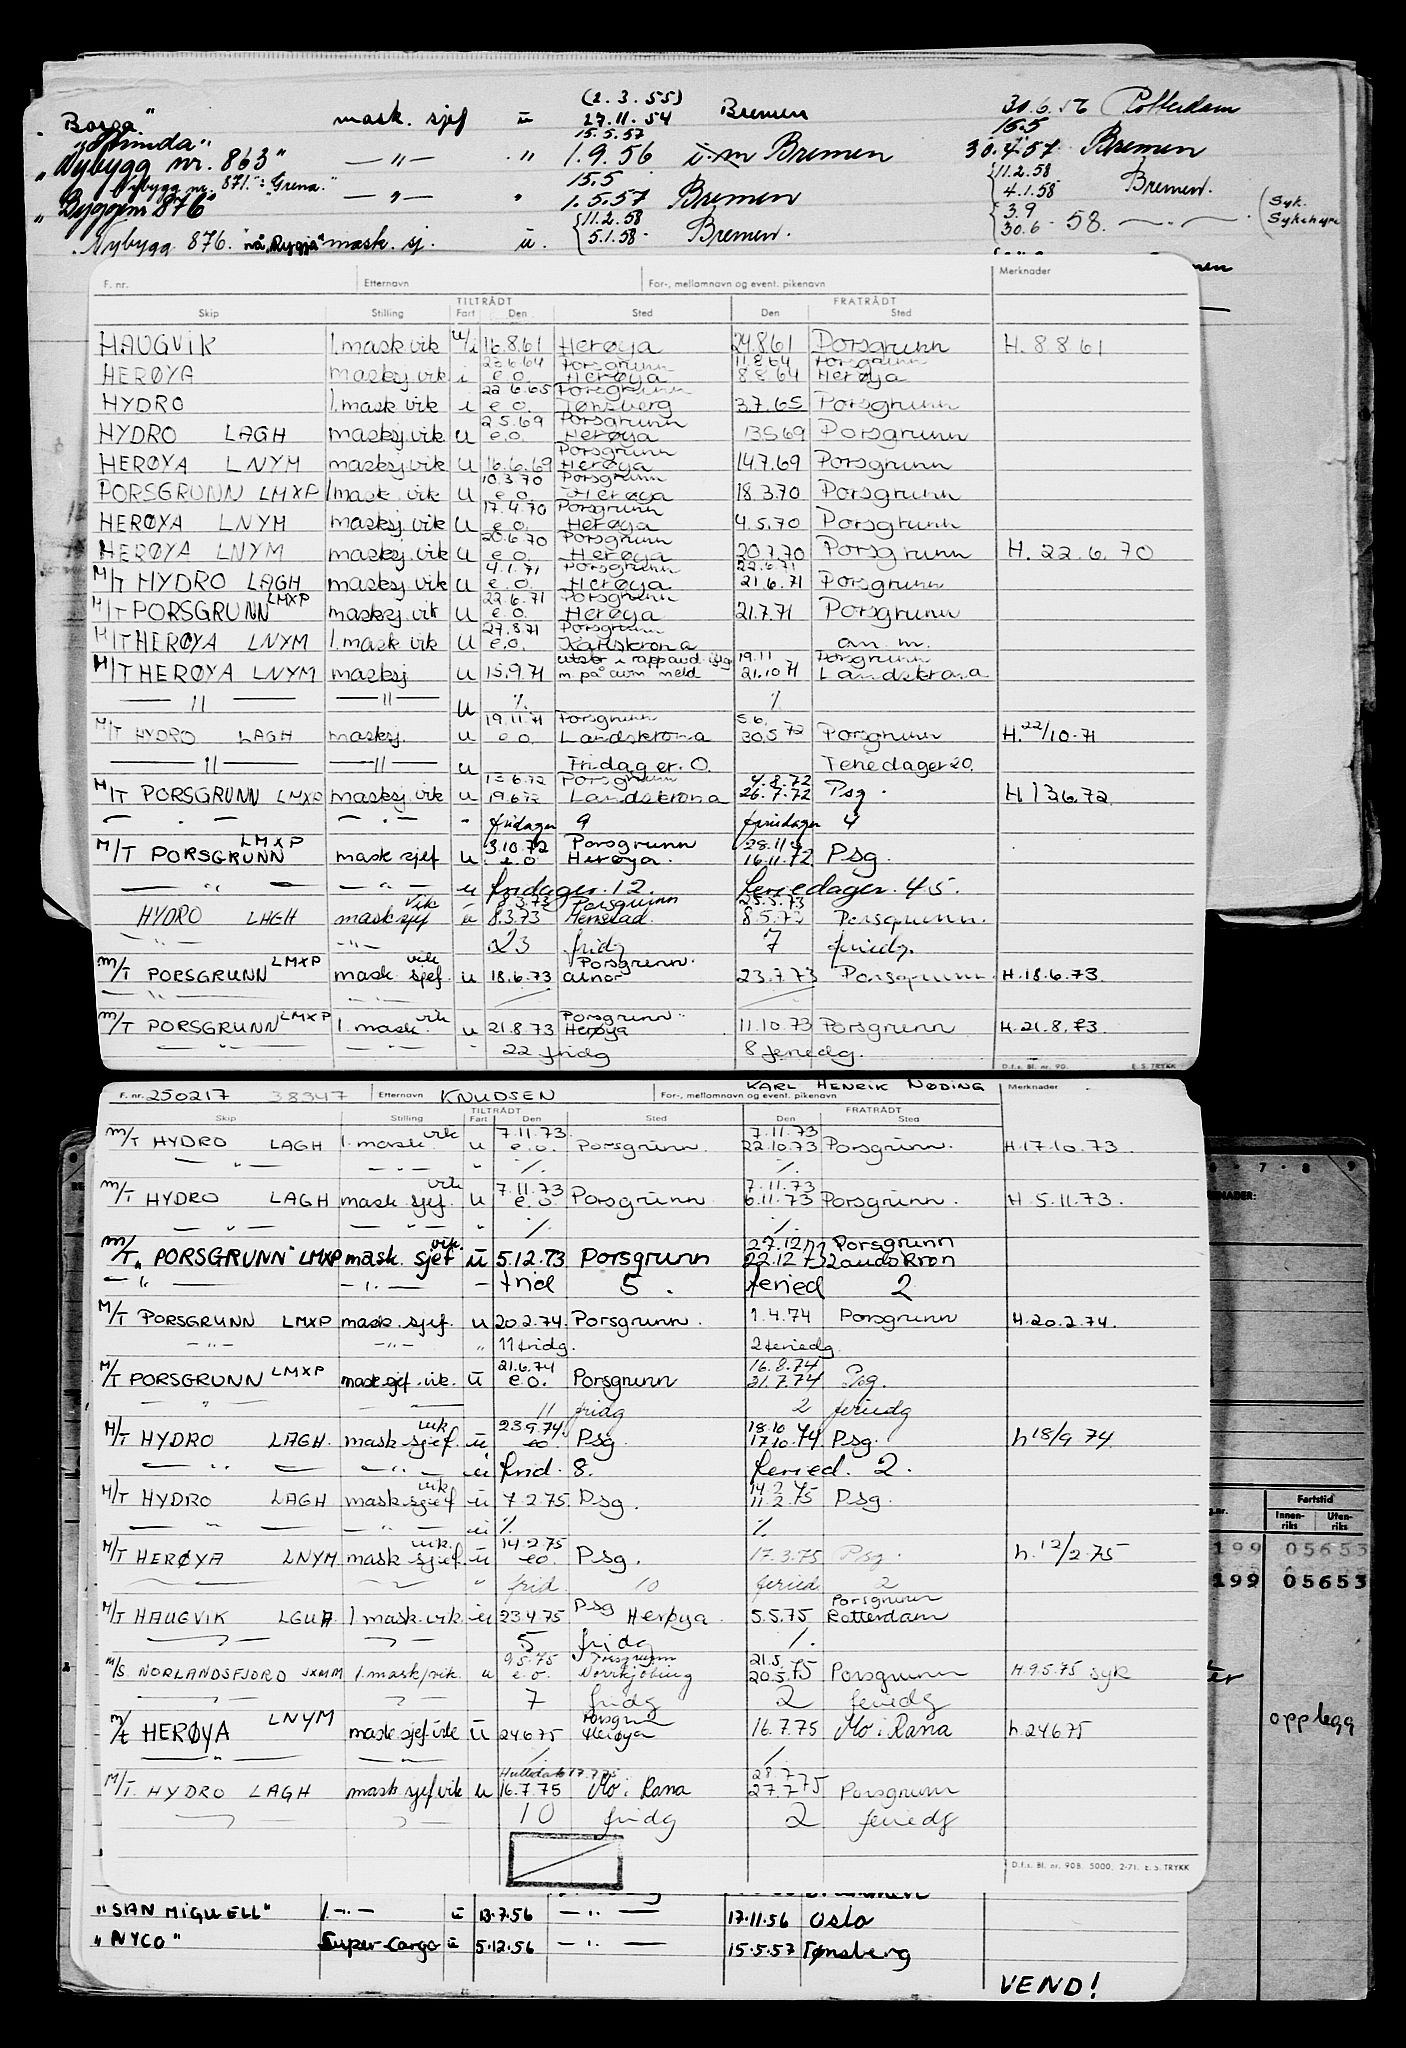 (2.3.55)
"Borga" mask. sjef u 27.11.54 Bremen 30.6.56 Rotterdam
15.5.57 15.5
"Nybygg nr. 863" — " — " 1.9.56 i.m Bremen 30.4.57 Bremen
Nybygg nr. 871.": "Grena." 15.5 11.2.58
"Byggenr 876" — " — " 1.5.57 Bremen 4.1.58 Bremen.
11.2.58 3.9
Nybygg 876. nå "Rygja" mask. sj. u. 5.1.58 - Bremen. 30.6 - 58. — " — (Syk. Sykehyre
F. nr. Etternavn For-, mellomnavn og event. pikenavn Merknader
TILTRÅDT FRATRÅDT
Skip Stilling Fart Den Sted Den Sted
HAUGVIK 1.mask vik u/i 16.8.61 Herøya 24.8.61 Porsgrunn H. 8 8 61
23 6 64 Porsgrunn 11.8 64 Porsgrunn
HERØYA masksj. vik i e.o. Herøya 8 8 64 Herøya
22 6.65 Porsgrunn
HYDRO 1.mask vik i e.o. Tønsberg 3.7.65 Porsgrunn
2 5.69 Porsgrunn
HYDRO LAGH masksj. vik u e.o. Herøya 13.5.69 Porsgrunn
Porsgrunn
HERØYA LNYM masksj. vik u 16.6.69 Herøya 14.7.69 Porsgrunn
10.3.70 Porsgrunn
PORSGRUNN LMXP 1.mask vik u e.o. Herøya 18.3.70 Porsgrunn
17.4.70 Porsgrunn
HERØYA LNYM masksj. vik u e.o. Herøya 4.5.70 Porsgrunn
20.6.70 Porsgrunn
HERØYA LNYM masksj. vik u e.o. Herøya 20.7.70 Porsgrunn H. 22.6.70
4.1.71 Porsgrunn 22.6.71
M/T HYDRO LAGH masksj. vik u e.o. Herøya 21.6.71 Porsgrunn
22.6.71 Porsgrunn
M/T PORSGRUNN LMXP masksj. vik u e.o. Herøya 21.7.71 Porsgrunn
27.8.71 Porsgrunn
M/T HERØYA LNYM 1.mask vik u e.o. Karlskrona an. m.
19.11 Porsgrunn
M/T HERØYA LNYM masksj u 15.9.71 m på avm meld 21.10 71 Landskrona
— " — — " — u %. %
19.11.71 Porsgrunn 5 6.
M/T HYDRO LAGH masksj. u e.o. Landskrona 30.5 72 Porsgrunn H. 22/10-71
— " — — " — u Fridager. 0. Feriedager 20.
13 6.72 Porsgrunn 4.8.72
M/T PORSGRUNN LMXP masksj. vik u 19.6.72 Landskrona 26.7.72 Psg. H 13.6.72
— " — — " — " fridager 9 feriedager 4
LMXP 3.10.72 Porsgrunn 28.11
M/T PORSGRUNN mask sjef u e.o Herøya. 16.11.72 Psg.
— " — — " — u fridager. 12. feriedager. 45.
vik 8.3.73 Porsgrunn 25.5.73
HYDRO LAGH mask sjef u 8.3.73 8.5.72 Porsgrunn.
— " — — " — 23 fridg 7 feriedg.
vik Porsgrunn.
m/T PORSGRUNN LMXP mask. sjef. u 18.6.73 23.7.73 Porsgrunn. H.18.6.73.
— " — — " —
vik Porsgrunn
m/T PORSGRUNN LMXP 1. mask. u 21.8.73 Herøya 11.10.73 Porsgrunn H. 21.8.73.
— " — — " — 22 fridg 8 feriedg.
D.f.s. Bl. nr. 90. E. S. TRYKK
F. nr. 250217 38347 Etternavn KNUDSEN For-, mellomnavn og event. pikenavn KARL HENRIK NØDING Merknader
TILTRÅDT FRATRÅDT
Skip Stilling Fart Den Sted Den Sted
vik 7.11.73. 7.11.73
m/T HYDRO LAGH 1. mask. u e.o. Porsgrunn. 22.10.73 Porsgrunn. H.17.10.73.
— " — — " — " %. %.
vik 7.11.73 7.11.73
m/T HYDRO LAGH mask. sjef. u e.o. Porsgrunn. 6.11.73 Porsgrunn. H. 5.11.73.
— " — — " — " %. %.
vik. 27.12 Porsgrunn
m/T "PORSGRUNN" LMXP mask. sjef u 5.12.73 Porsgrunn 22.12.73 Landskron
— " — — " — — frid 5. feried 2
M/T PORSGRUNN LMXP mask. sjef. u 20.2.74. Porsgrunn. 1.4.74 Porsgrunn H.20.2.74.
— " — — " — " 11 fridg. 2 feriedg.
21.6.74 16.8.74
M/T PORSGRUNN LMXP mask sjef. vik. u e.o. Porsgrunn 31.7.74 Psg.
" 11 fridg 2 feriedg
vik 23 9.74. 18.10
M/T HYDRO LAGH. mask sjef. u eo. Psg. 17.10.74 Psg. h 18/9 74
— " — — " — u frid. 8. feried. 2.
vik 14.2
M/T HYDRO LAGH mask sjef u 7.2.75. Psg. 11.2.75 Psg.
— " — — " — u %. %.
vik. 14.2.75
M/T HERØYA LNYM mask sjef. u eo. Psg. 17.3.75 Psg. h. 12/2.75
" frid. 10 feried 2
Psg Porsgrunn
M/T HAUGVIK LGUA 1 mask. vik. u 23.4.75 Herøya. 5.5.75 Rotterdam
5 fridg %.
9.5.75 Porsgrunn 21.5.
m/s NORLANDSFJORD JXMM 1. mask/vik. u e.o. Norrkjöbing 20.5.75 Porsgrunn H.9.5.75 syk
7 fridg 2 feriedg
Porsgrunn
m/t HERØYA LNYM mask sjef vik u 24675 Herøya 16.7.75 Mo i Rana h.24675
— " — — " — %. %.
17.7.75 28.7
M/T. HYDRO LAGH mask sjef vik u 16.7.75 Mo i Rana 27.7.75 Porsgrunn
10 fridg 2 feriedg
D.f.s. Bl. nr. 90B. 5000. 2-71. E. S. TRYKK
"SAN MIGUELL" 1. - " - u 13.7.56 — " — 17.11.56 Oslo
"NYCO" Super-Cargo u 5.12.56 — " — 15.5.57 Tønsberg
VEND!
6 · 7 · 8 · 9
Fartstid
Innen-riks Uten-riks
199 05653
199 05653
opplegg